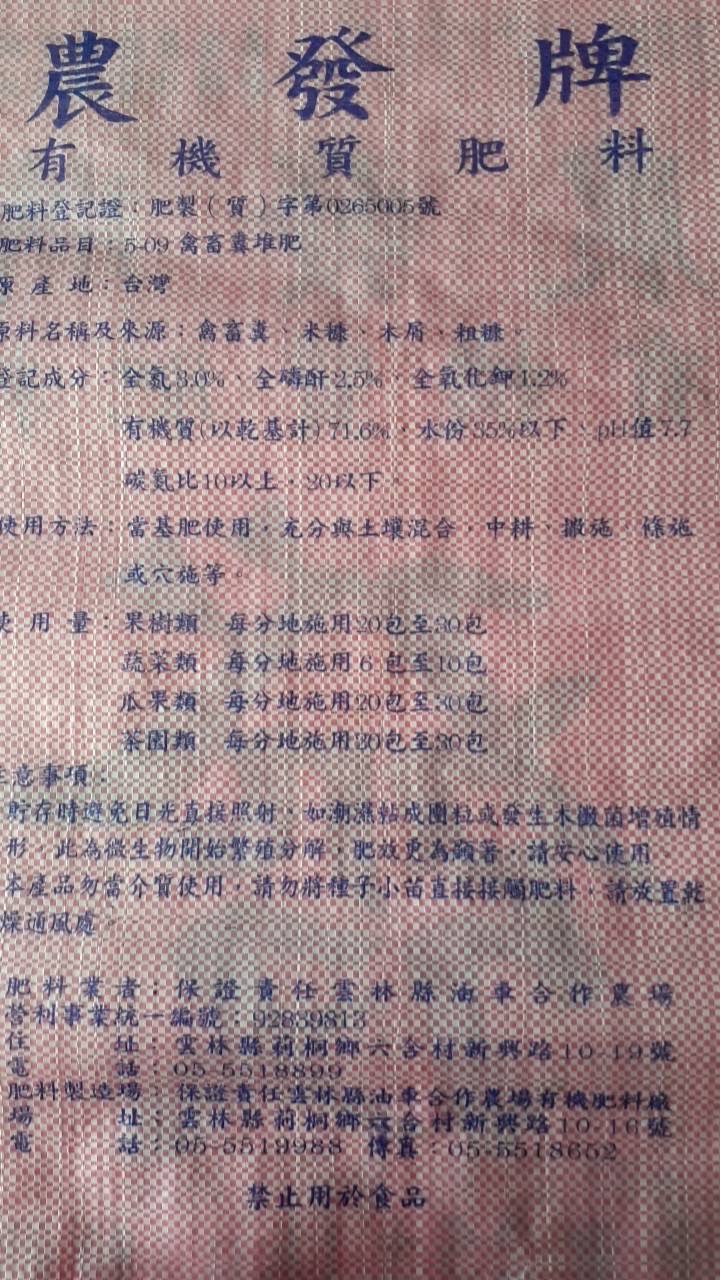 農發牌
有機質肥料
肥料登記證:肥製(質)字第0265005號
肥料品目:5-09 禽畜糞堆肥
原產地:台灣
原料名稱及來源:禽畜糞、米糠、木屑、粗糠。
登記成分:全氮3.0%、全磷酐2.5%、全氧化鉀1.2%
有機質(以乾基計)71.6%,水份35%以下、pH值7.7
碳氮比10以上,20以下。
使用方法:當基肥使用,充分與土壤混合,中耕、撒施、條施
或穴施等。
使用量:果樹類 每分地施用20包至30包
蔬菜類 每分地施用6包至10包
瓜果類 每分地施用20包至30包
茶園類 每分地施用20包至30包
注意事項:
貯存時避免日光直接照射、如潮濕粘成團粒或發生木黴菌增殖情
形,此為微生物開始繁殖分解,肥效更為顯著,請安心使用。
本產品勿當介質使用,請勿將種子小苗直接接觸肥料,請放置乾
燥通風處。
肥料業者:保證責任雲林縣油車合作農場
營利事業統一編號:92839813
住址:雲林縣莿桐鄉六合村新興路10-19號
電話:05-5518899
肥料製造場:保證責任雲林縣油車合作農場有機肥料廠
場址:雲林縣莿桐鄉六合村新興路10-16號
電話:05-5519988 傳真:05-5518652
禁止用於食品